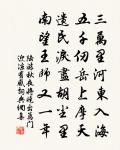 三萬里河東入海
五千仞岳上摩天
遺民淚盡胡塵里
南望王師又一年
陸游秋夜將曉出籬門
迎涼有感詞典網集